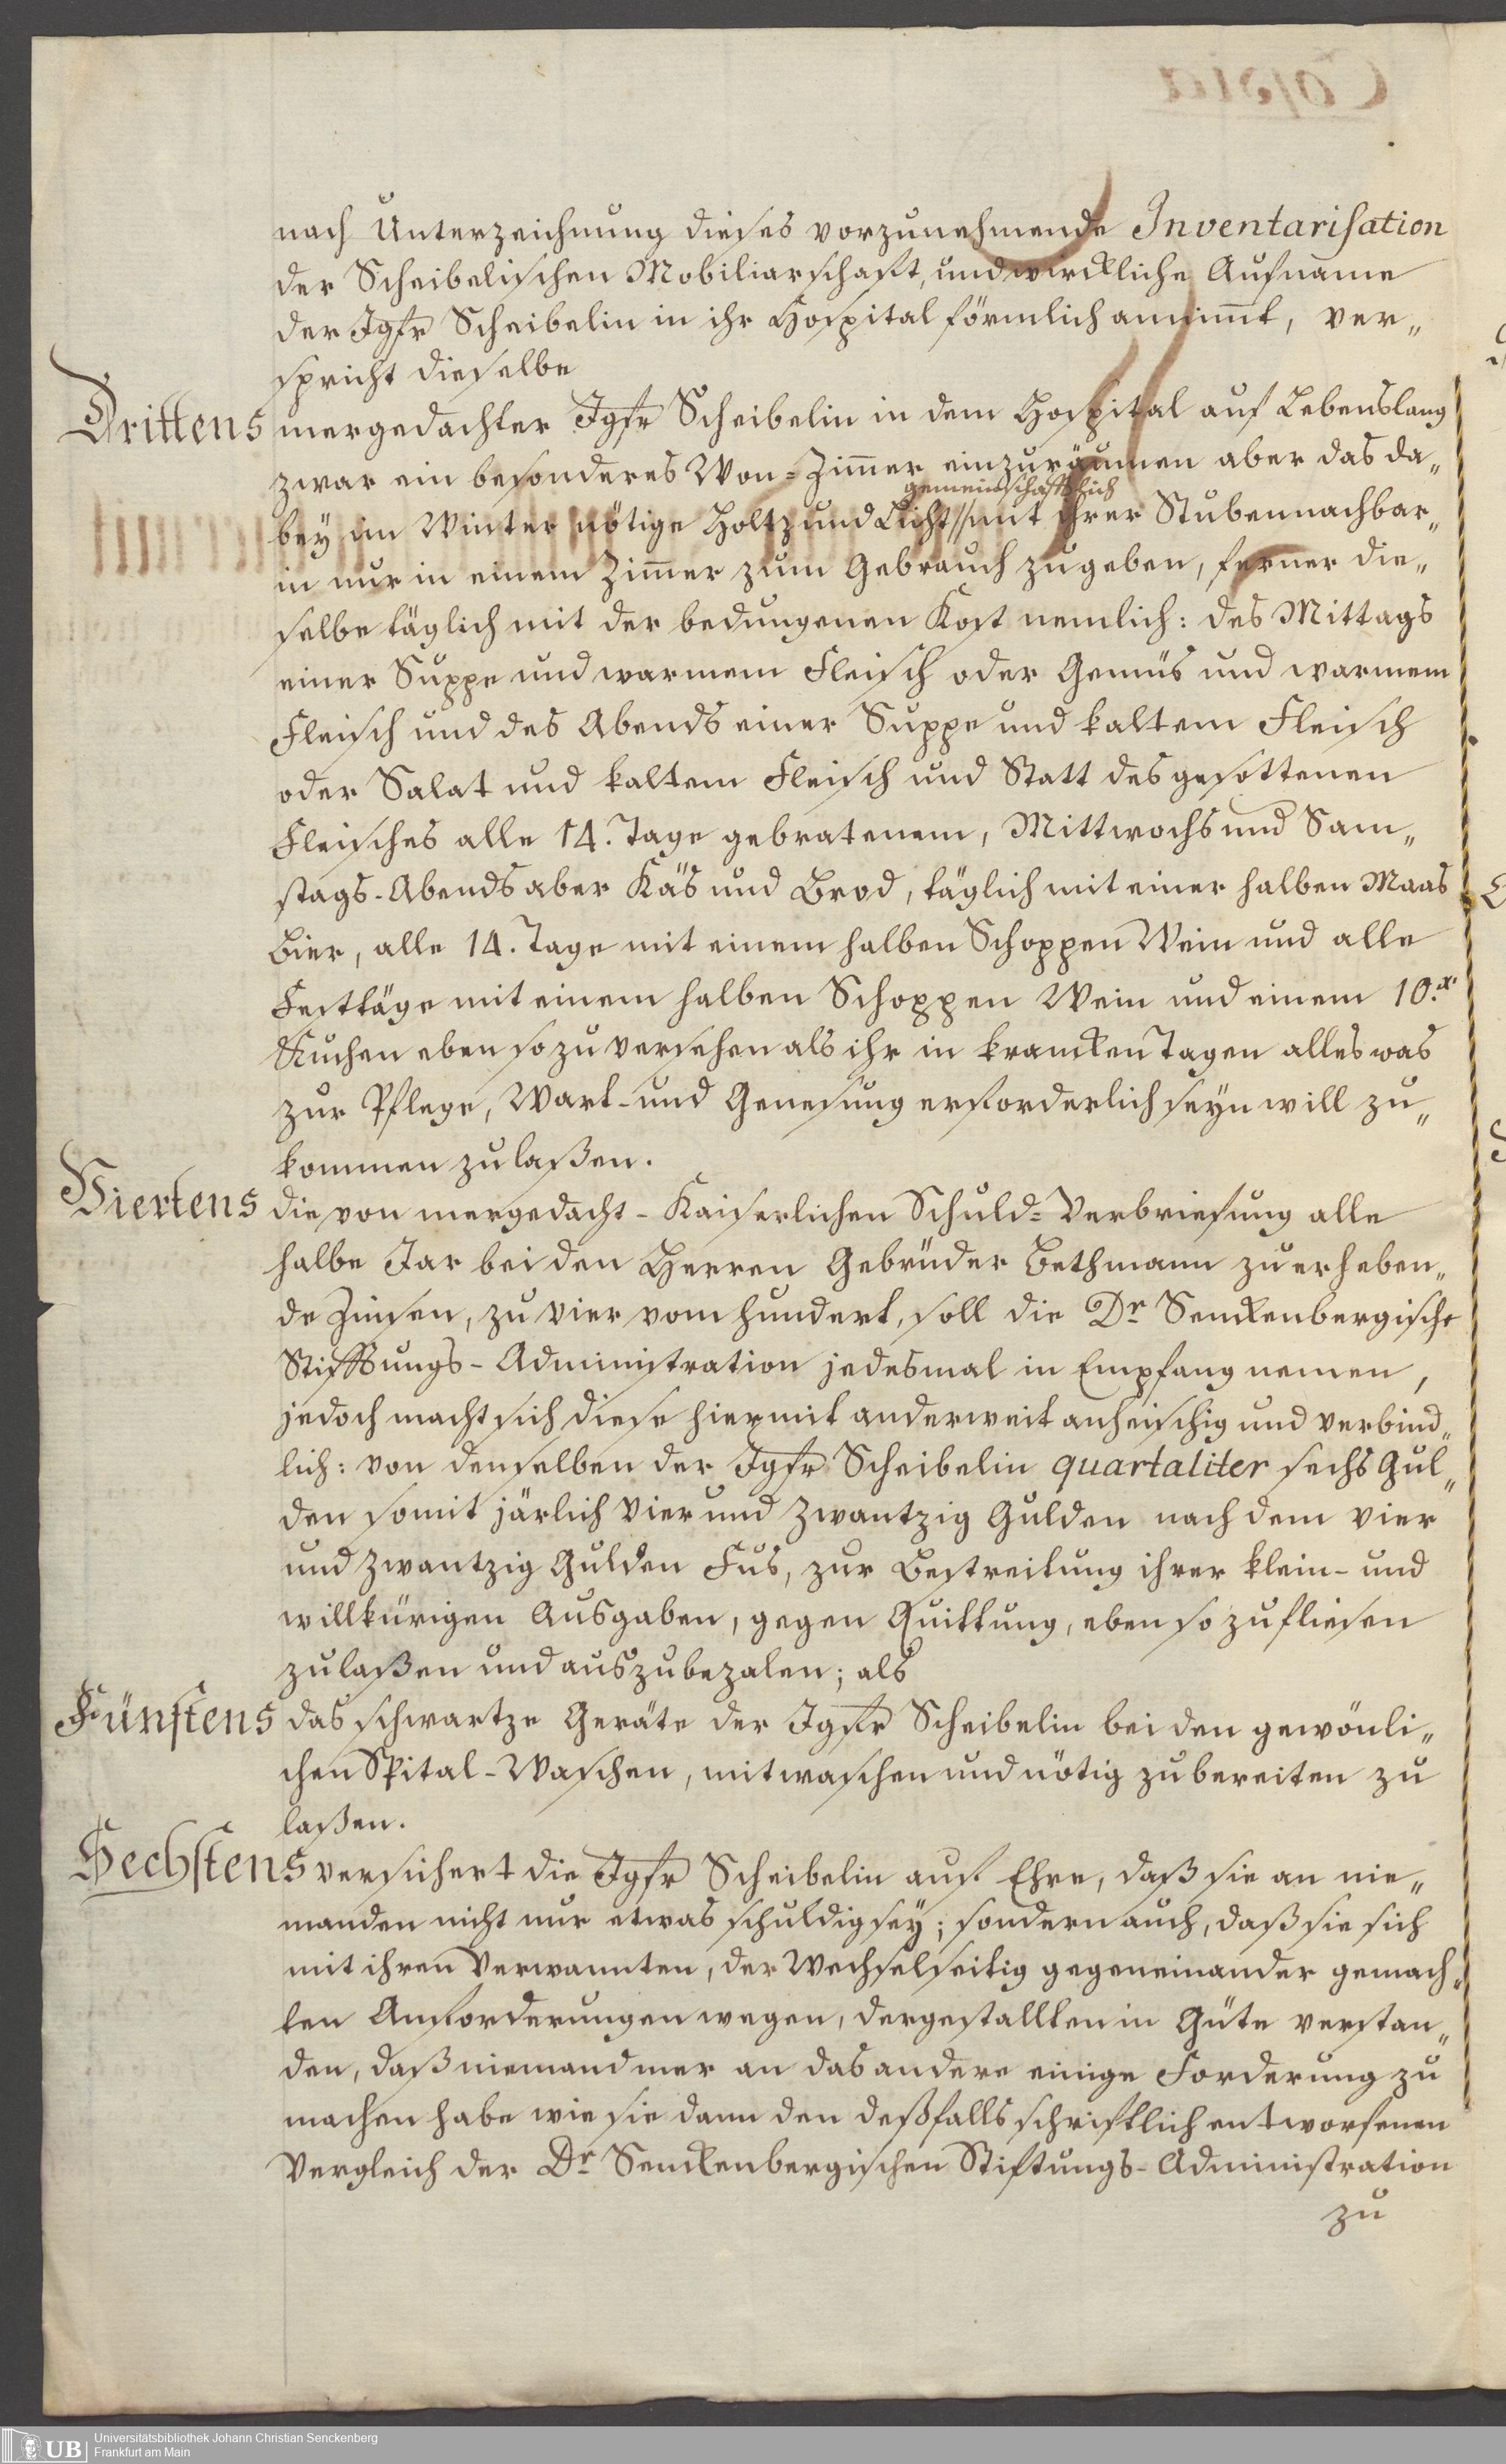 nach Unterzeichnung dieses vorzunehmende Inventarisation
der Scheibelischen Mobiliarschaft, und wirckliche Aufname
der Jgfr Scheibelin in ihr Hospital förmlich annimt, ver„
spricht dieselbe
Drittens mergedachter Jgfr Scheibelin in dem Hospital auf Lebenslang
zwar ein besonderes Won-Zimmer einzuräumen aber das da„
gemeinschafftlich
bey im Winter nötige Holtz und Licht // mit ihrer Stubennachbar„
in nur in einem Zimmer zum Gebrauch zu geben, ferner die„
selbe täglich mit der bedungenen Kost nemlich: des Mittags
einer Suppe und warmem Fleisch oder Gemüs und warmem
Fleisch und des Abends einer Suppe und kaltem Fleisch
oder Salat und kaltem Fleisch und Statt des gesottenen
Fleisches alle 14. Tage gebratenem, Mittwochs und Sam„
stags-Abends aber Käs und Brod, täglich mit einer halben Maas
Bier, alle 14. Tage mit einem halben Schoppen Wein und alle
Festtäge mit einem halben Schoppen Wein und einem 10.x.
Kuchen eben so zu versehen als ihr in krancken Tagen alles was
zur Pflege, Wart- und Genesung erforderlich seyn will zu„
kommen zu laßen.
Viertens die von mergedacht-Kaiserlichen Schuld-Verbriefung alle
halbe Jar bei den Herren Gebrüder Bethmann zu erheben„
de Zinsen, zu vier vom hundert, soll die Dr Senckenbergische
Stifftungs-Administration jedesmal in Empfang nemen,
jedoch macht sich diese hiermit anderweit anheischig und verbind„
lich: von denselben der Jgfr Scheibelin quartaliter sechs Gul„
den somit järlich vier und zwantzig Gulden nach dem vier
und zwantzig Gulden Fus, zur Bestreitung ihrer klein- und
willkürigen Ausgaben, gegen Quittung, eben so zufliesen
zu laßen und auszubezalen; als
Fünftens das schwartze Geräte der Jgfr Scheibelin bei den gewönli„
chen Spital-Waschen, mitwaschen und nötig zubereiten zu
laßen.
Sechstens versichert die Jgfr Scheibelin auf Ehre, daß sie an nie„
manden nicht nur etwas schuldig sey; sondern auch, daß sie sich
mit ihren Verwannten, der Wechselseitig gegeneinander gemach„
ten Anforderungen wegen, dergestallten in Güte verstan„
den, daß niemand mer an das andere einige Forderung zu
machen habe wie sie dann den deßfalls schriftlich entworfenen
Vergleich der Dr Senckenbergischen Stiftungs-Administration
zu
UB Universitätsbibliothek Johann Christian Senckenberg
Frankfurt am Main